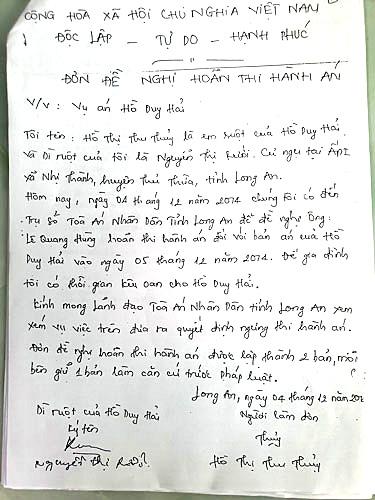 CÔNG HÒA XÃ HỘI CHỦ NGHĨA VIỆT NAM
ĐÔC LẬP - TỰ DO - HẠNH PHÚC
ĐƠN ĐỀ NGHỊ HOÃN THI HÀNH ÁN
V/v : Vụ án Hồ Duy Hải
Tôi tên : Hồ Thị Thu Thủy là em ruột của Hồ Duy Hải.
Và Dì ruột của tôi là Nguyễn Thị Rưởi. Cư ngụ tại ẤP I
xã Nhị Thành, huyện Thủ Thừa, tỉnh Long An.
Hôm nay, ngày 04 tháng 12 năm 2014 chúng tôi có đến
Trụ Sở Toà Án Nhân Dân Tỉnh Long An để đề nghị Ông:
Lê Quang Hùng hoãn thi hành án đối với bản án của Hồ
Duy Hải vào ngày 05 tháng 12 năm 2014. Để gia đình
tôi có thời gian kêu oan cho Hồ Duy Hải.
Kính mong Lãnh đạo Toà Án Nhân Dân tỉnh Long An xem
xem vụ việc trên đưa ra quyết định ngừng thi hành án.
Đơn đề nghị hoãn thi hành án được lập thành 2 bản, mỗi
bên giữ 1 bản làm căn cứ trước pháp luật.
Long An, ngày 04 tháng 12 năm
Dì ruột của Hồ Duy Hải Người làm đơn
ký tên Thủy
Nguyễn Thị Hồ Thị Thu Thủy